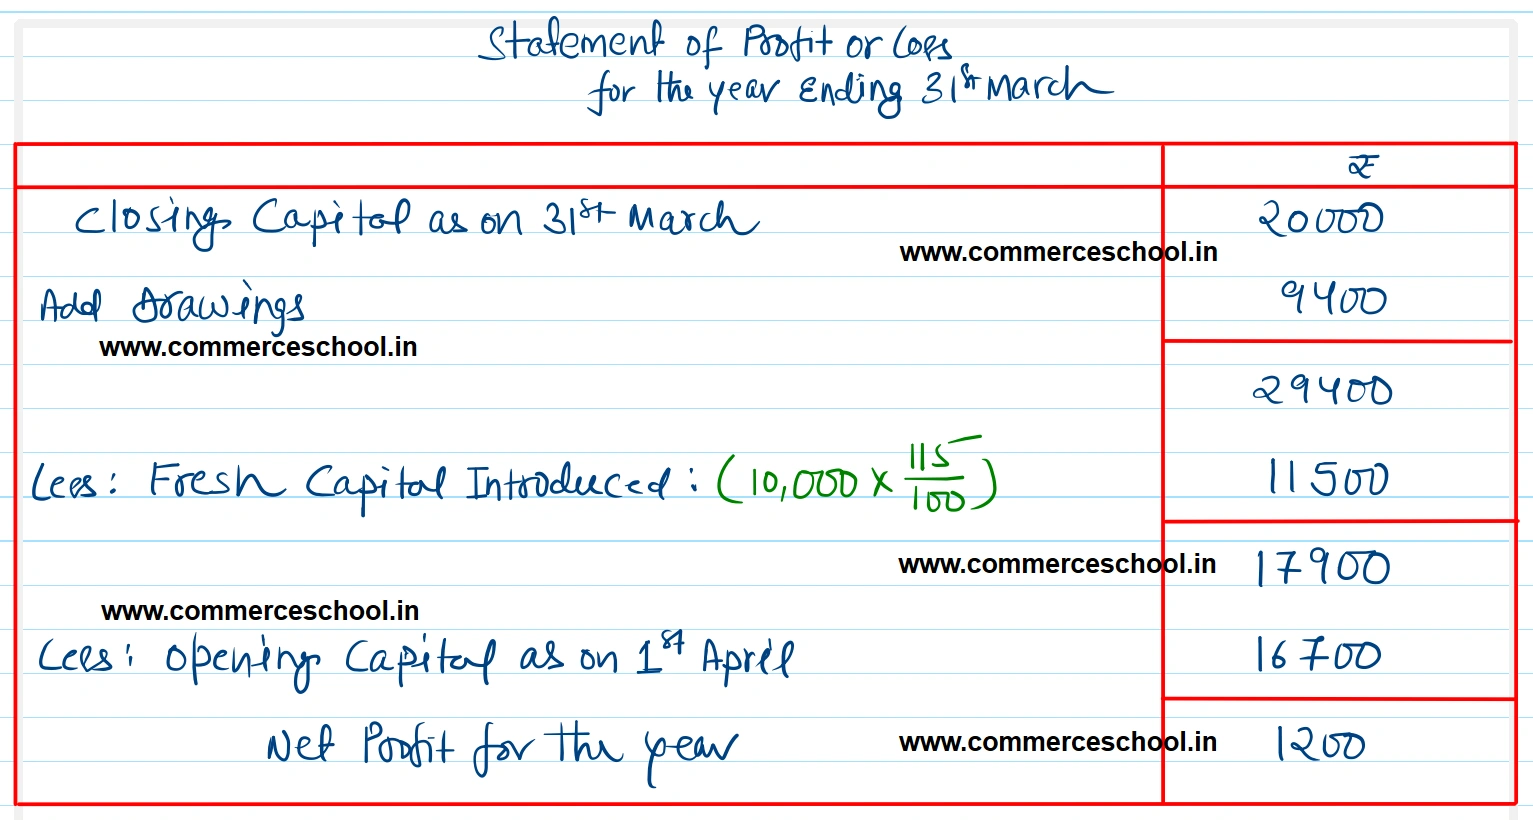 Statement of Profit or Loss
for the year Ending 31st March
₹
Closing Capital as on 31st March 20000
www.commerceschool.in
Add Drawings 9400
www.commerceschool.in
29400
Less: Fresh Capital Introduced: (10,000 × 115/100) 11500
www.commerceschool.in 17900
www.commerceschool.in
Less: Opening Capital as on 1st April 16700
Net Profit for the year www.commerceschool.in 1200